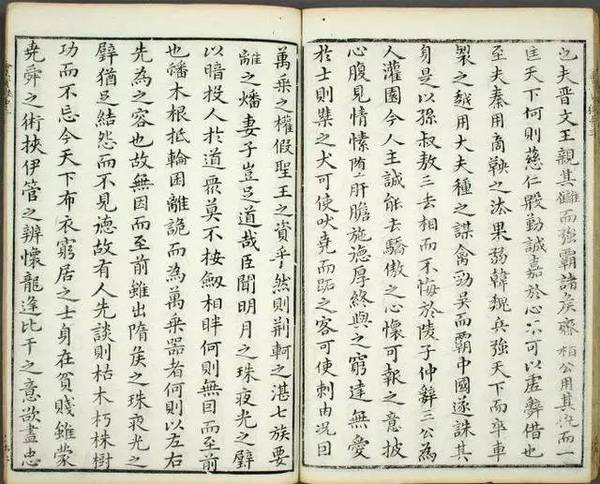 也夫晋文王親其讎而強霸諸矦齊桓公用其仇而一
匡天下何則慈仁殷勤誠嘉於心不可以虗辭借也
至夫秦用商鞅之法果弱韓魏兵強天下而卒車
裂之越用大夫種之謀禽勁吴而霸中國遂誅其
身是以孫叔敖三去相而不悔於陵子仲辭三公為
人灌園今人主誠能去驕傲之心懷可報之意披
心腹見情愫隳肝膽施德厚終與之窮達無愛
於士則桀之犬可使吠堯而跖之客可使刺由况因
萬乗之權假聖王之資乎然則荆軻之湛七族要
離之燔妻子豈足道哉臣聞明月之珠夜光之璧
以暗投人於道衆莫不按劒相眄何則無因而至前
也蟠木根抵輪囷離詭而為萬乗器者何則以左右
先為之容也故無因而至前雖出隋矦之珠夜光之
璧猶足結怨而不見德故有人先談則枯木朽株樹
功而不忘今天下布衣窮居之士身在貧賤雖蒙
堯舜之術挾伊管之辨懷龍逢比干之意欲盡忠